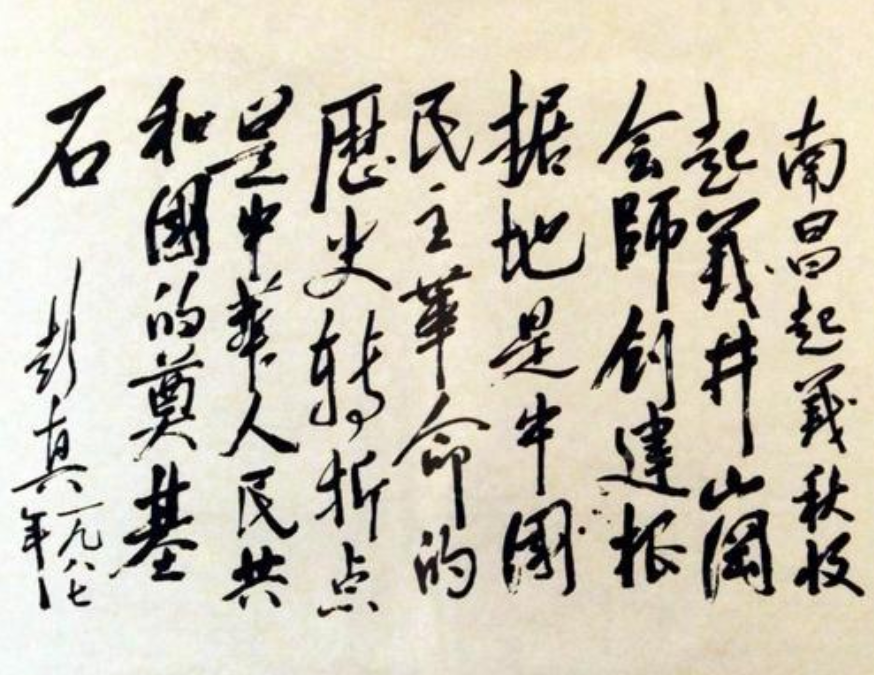 南昌起義秋收
起義井山岡
会師創建根
据地是中國
民主革命的
歷史轉折点
是中華人民共
和國的奠基
石
彭真
一九八七
年